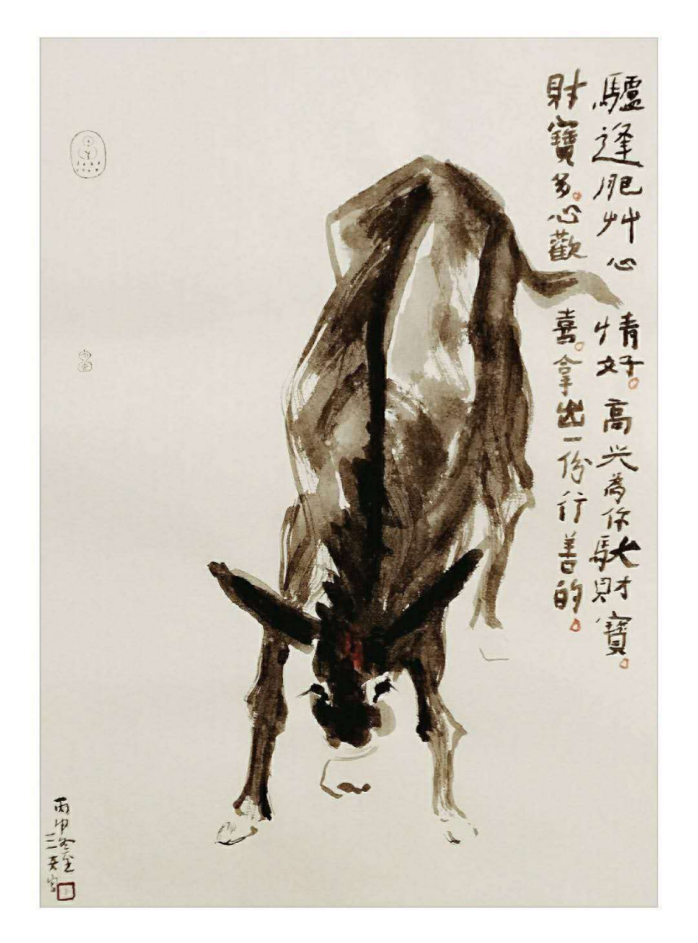 驢逢肥艸心情好。高兴為你馱財寶。
財寶多。心歡喜。拿出一份行善的。
丙申冬至